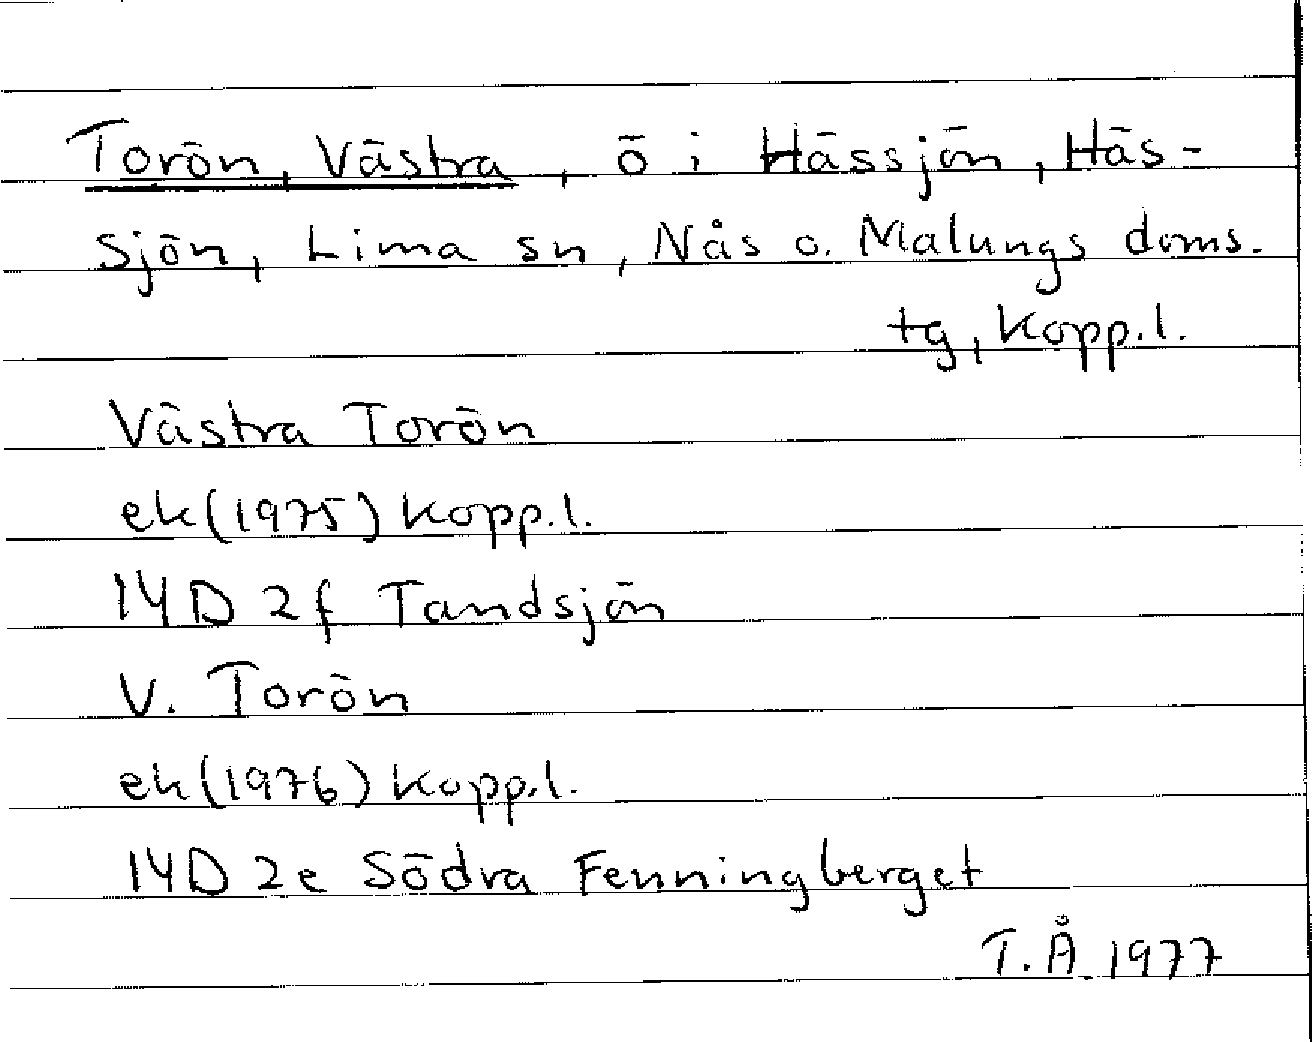 Torön, Västra, ö i Hässjön, Häs-
sjön, Lima sn, Nås o. Malungs doms.
tg, Kopp.l.
Västra Torön
ek(1975) Kopp.l.
14D 2f Tandsjön
V. Torön
ek(1976) Kopp.l.
14D 2e Södra Fenningberget
T.Å. 1977